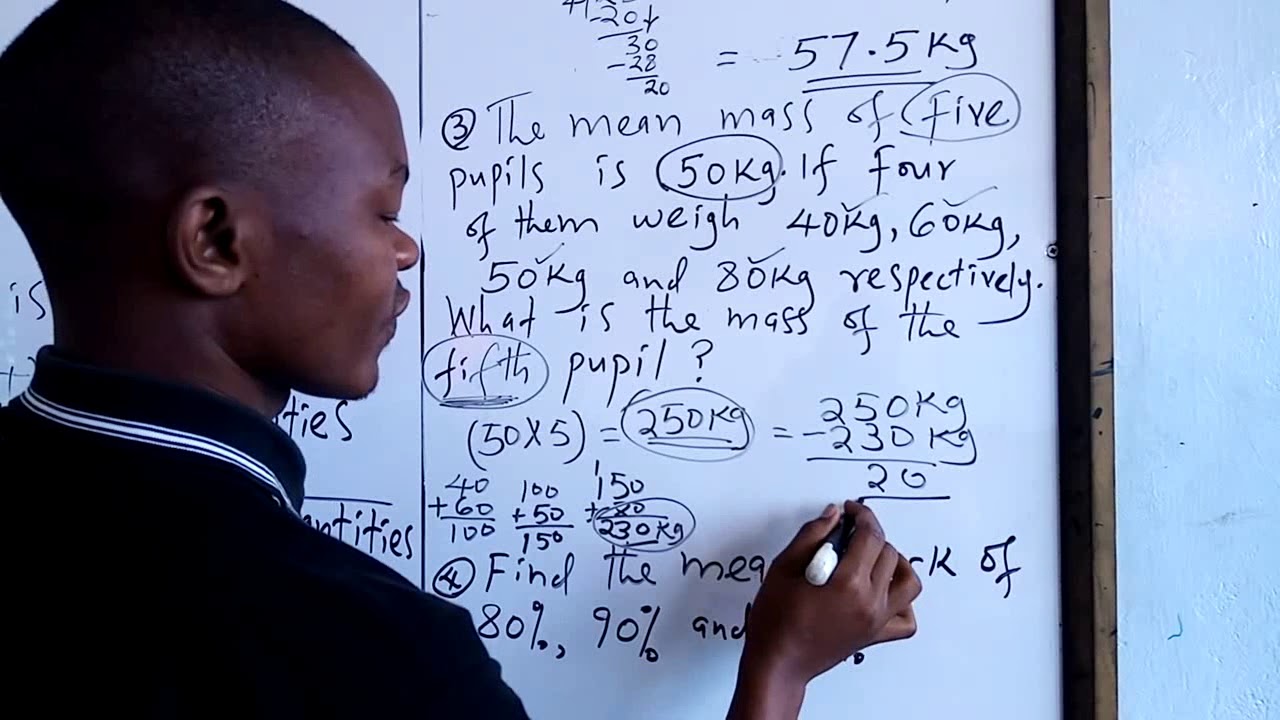 -20
30
-28
20
= 57.5Kg
③ The mean mass of five
pupils is 50Kg. If four
of them weigh 40Kg, 60Kg,
50Kg and 80Kg respectively.
What is the mass of the
fifth pupil?
(50×5) = 250Kg = 250Kg
-230Kg
20
40 100 150
+60 +50 +80
100 150 230Kg
④ Find the of
80%, 90% and
is
ties
antities